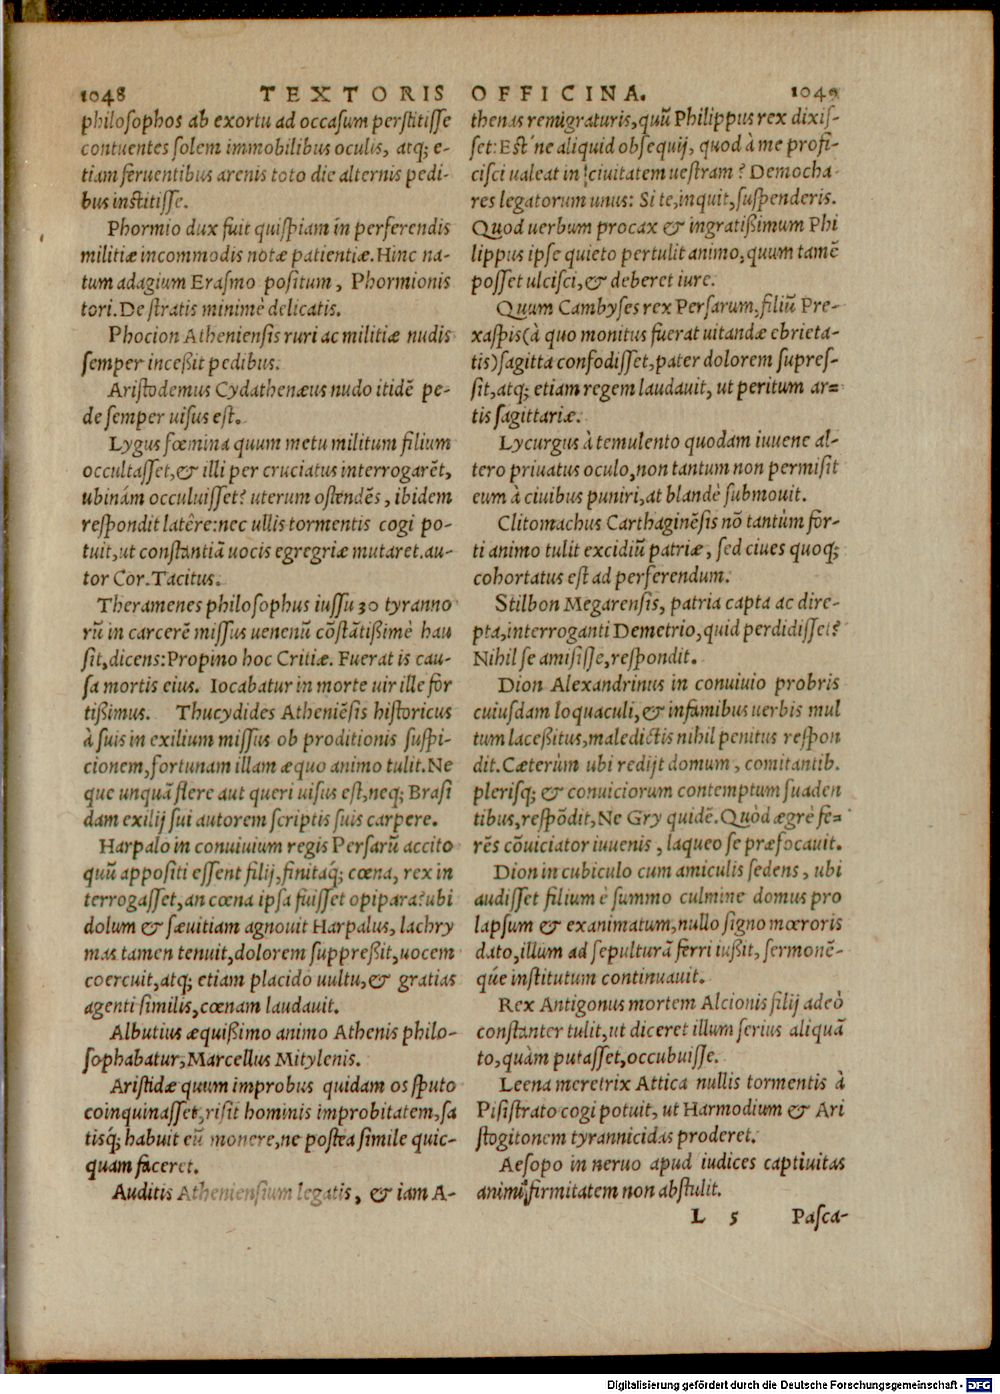 1048 TEXTORIS OFFICINA. 1049
philosophos ab exortu ad occasum perstitisse
contuentes solem immobilibus oculis, atq; e-
tiam feruentibus arenis toto die alternis pedi-
bus institisse.
Phormio dux fuit quispiam in perferendis
militiæ incommodis notæ patientiæ. Hinc na-
tum adagium Erasmo positum, Phormionis
tori. De stratis minimè delicatis.
Phocion Atheniensis ruri ac militiæ nudis
semper inceßit pedibus.
Aristodemus Cydathenæus nudo itidē pe-
de semper uisus est.
Lygus fœmina quum metu militum filium
occultasset, & illi per cruciatus interrogarēt,
ubinám occuluisset? uterum ostendēs, ibidem
respondit latêre: nec ullis tormentis cogi po-
tuit, ut constantiā uocis egregriæ mutaret. au-
tor Cor. Tacitus.
Theramenes philosophus iussu 30 tyranno
rū in carcerē missus uenenū cōstātißimè hau
sit, dicens: Propino hoc Critiæ. Fuerat is cau-
sa mortis eius. Iocabatur in morte uir ille for
tißimus. Thucydides Atheniēsis historicus
à suis in exilium missus ob proditionis suspi-
cionem, fortunam illam æquo animo tulit. Ne
que unquā flere aut queri uisus est, neq; Brasi
dam exilij sui autorem scriptis suis carpere.
Harpalo in conuiuium regis Persarū accito
quū appositi essent filij, finitaq́; cœna, rex in
terrogasset, an cœna ipsa fuisset opipara? ubi
dolum & sæuitiam agnouit Harpalus, lachry
mas tamen tenuit, dolorem suppreßit, uocem
coercuit, atq; etiam placido uultu, & gratias
agenti similis, cœnam laudauit.
Albutius æquißimo animo Athenis philo-
sophabatur, Marcellus Mitylenis.
Aristidæ quum improbus quidam os sputo
coinquinasset, risit hominis improbitatem, sa
tisq́; habuit eū monere, ne postea simile quic-
quam faceret.
Auditis Atheniensium legatis, & iam A-
thenas remigraturis, quū Philippus rex dixis-
set: Est'ne aliquid obsequij, quod à me profi-
cisci ualeat in ciuitatem uestram? Democha
res legatorum unus: Si te, inquit, suspenderis.
Quod uerbum procax & ingratißimum Phi
lippus ipse quieto pertulit animo, quum tamē
posset ulcisci, & deberet iure.
Quum Cambyses rex Persarum, filiū Pre-
xaspis (à quo monitus fuerat uitandæ ebrieta-
tis) sagitta confodisset, pater dolorem supres-
sit, atq; etiam regem laudauit, ut peritum ar=
tis sagittariæ.
Lycurgus à temulento quodam iuuene al-
tero priuatus oculo, non tantum non permisit
eum à ciuibus puniri, at blandè submouit.
Clitomachus Carthaginēsis nō tantùm for-
ti animo tulit excidiū patriæ, sed ciues quoq;
cohortatus est ad perferendum.
Stilbon Megarensis, patria capta ac dire-
pta, interroganti Demetrio, quid perdidisset?
Nihil se amisisse, respondit.
Dion Alexandrinus in conuiuio probris
cuiusdam loquaculi, & infamibus uerbis mul
tum laceßitus, maledictis nihil penitus respon
dit. Cæterùm ubi redijt domum, comitantib.
plerisq; & conuiciorum contemptum suaden
tibus, respōdit, Ne Gry quidē. Quòd ægrè fe=
rēs cōuiciator iuuenis, laqueo se præfocauit.
Dion in cubiculo cum amiculis sedens, ubi
audisset filium è summo culmine domus pro
lapsum & exanimatum, nullo signo mœroris
dato, illum ad sepulturā ferri iußit, sermonē-
q́ue institutum continuauit.
Rex Antigonus mortem Alcionis filij adeò
constanter tulit, ut diceret illum serius aliquā
to, quàm putasset, occubuisse.
Leena meretrix Attica nullis tormentis à
Pisistrato cogi potuit, ut Harmodium & Ari
stogitonem tyrannicidas proderet.
Aesopo in neruo apud iudices captiuitas
animi firmitatem non abstulit.
L 5 Pasca-
Digitalisierung gefördert durch die Deutsche Forschungsgemeinschaft - DFG